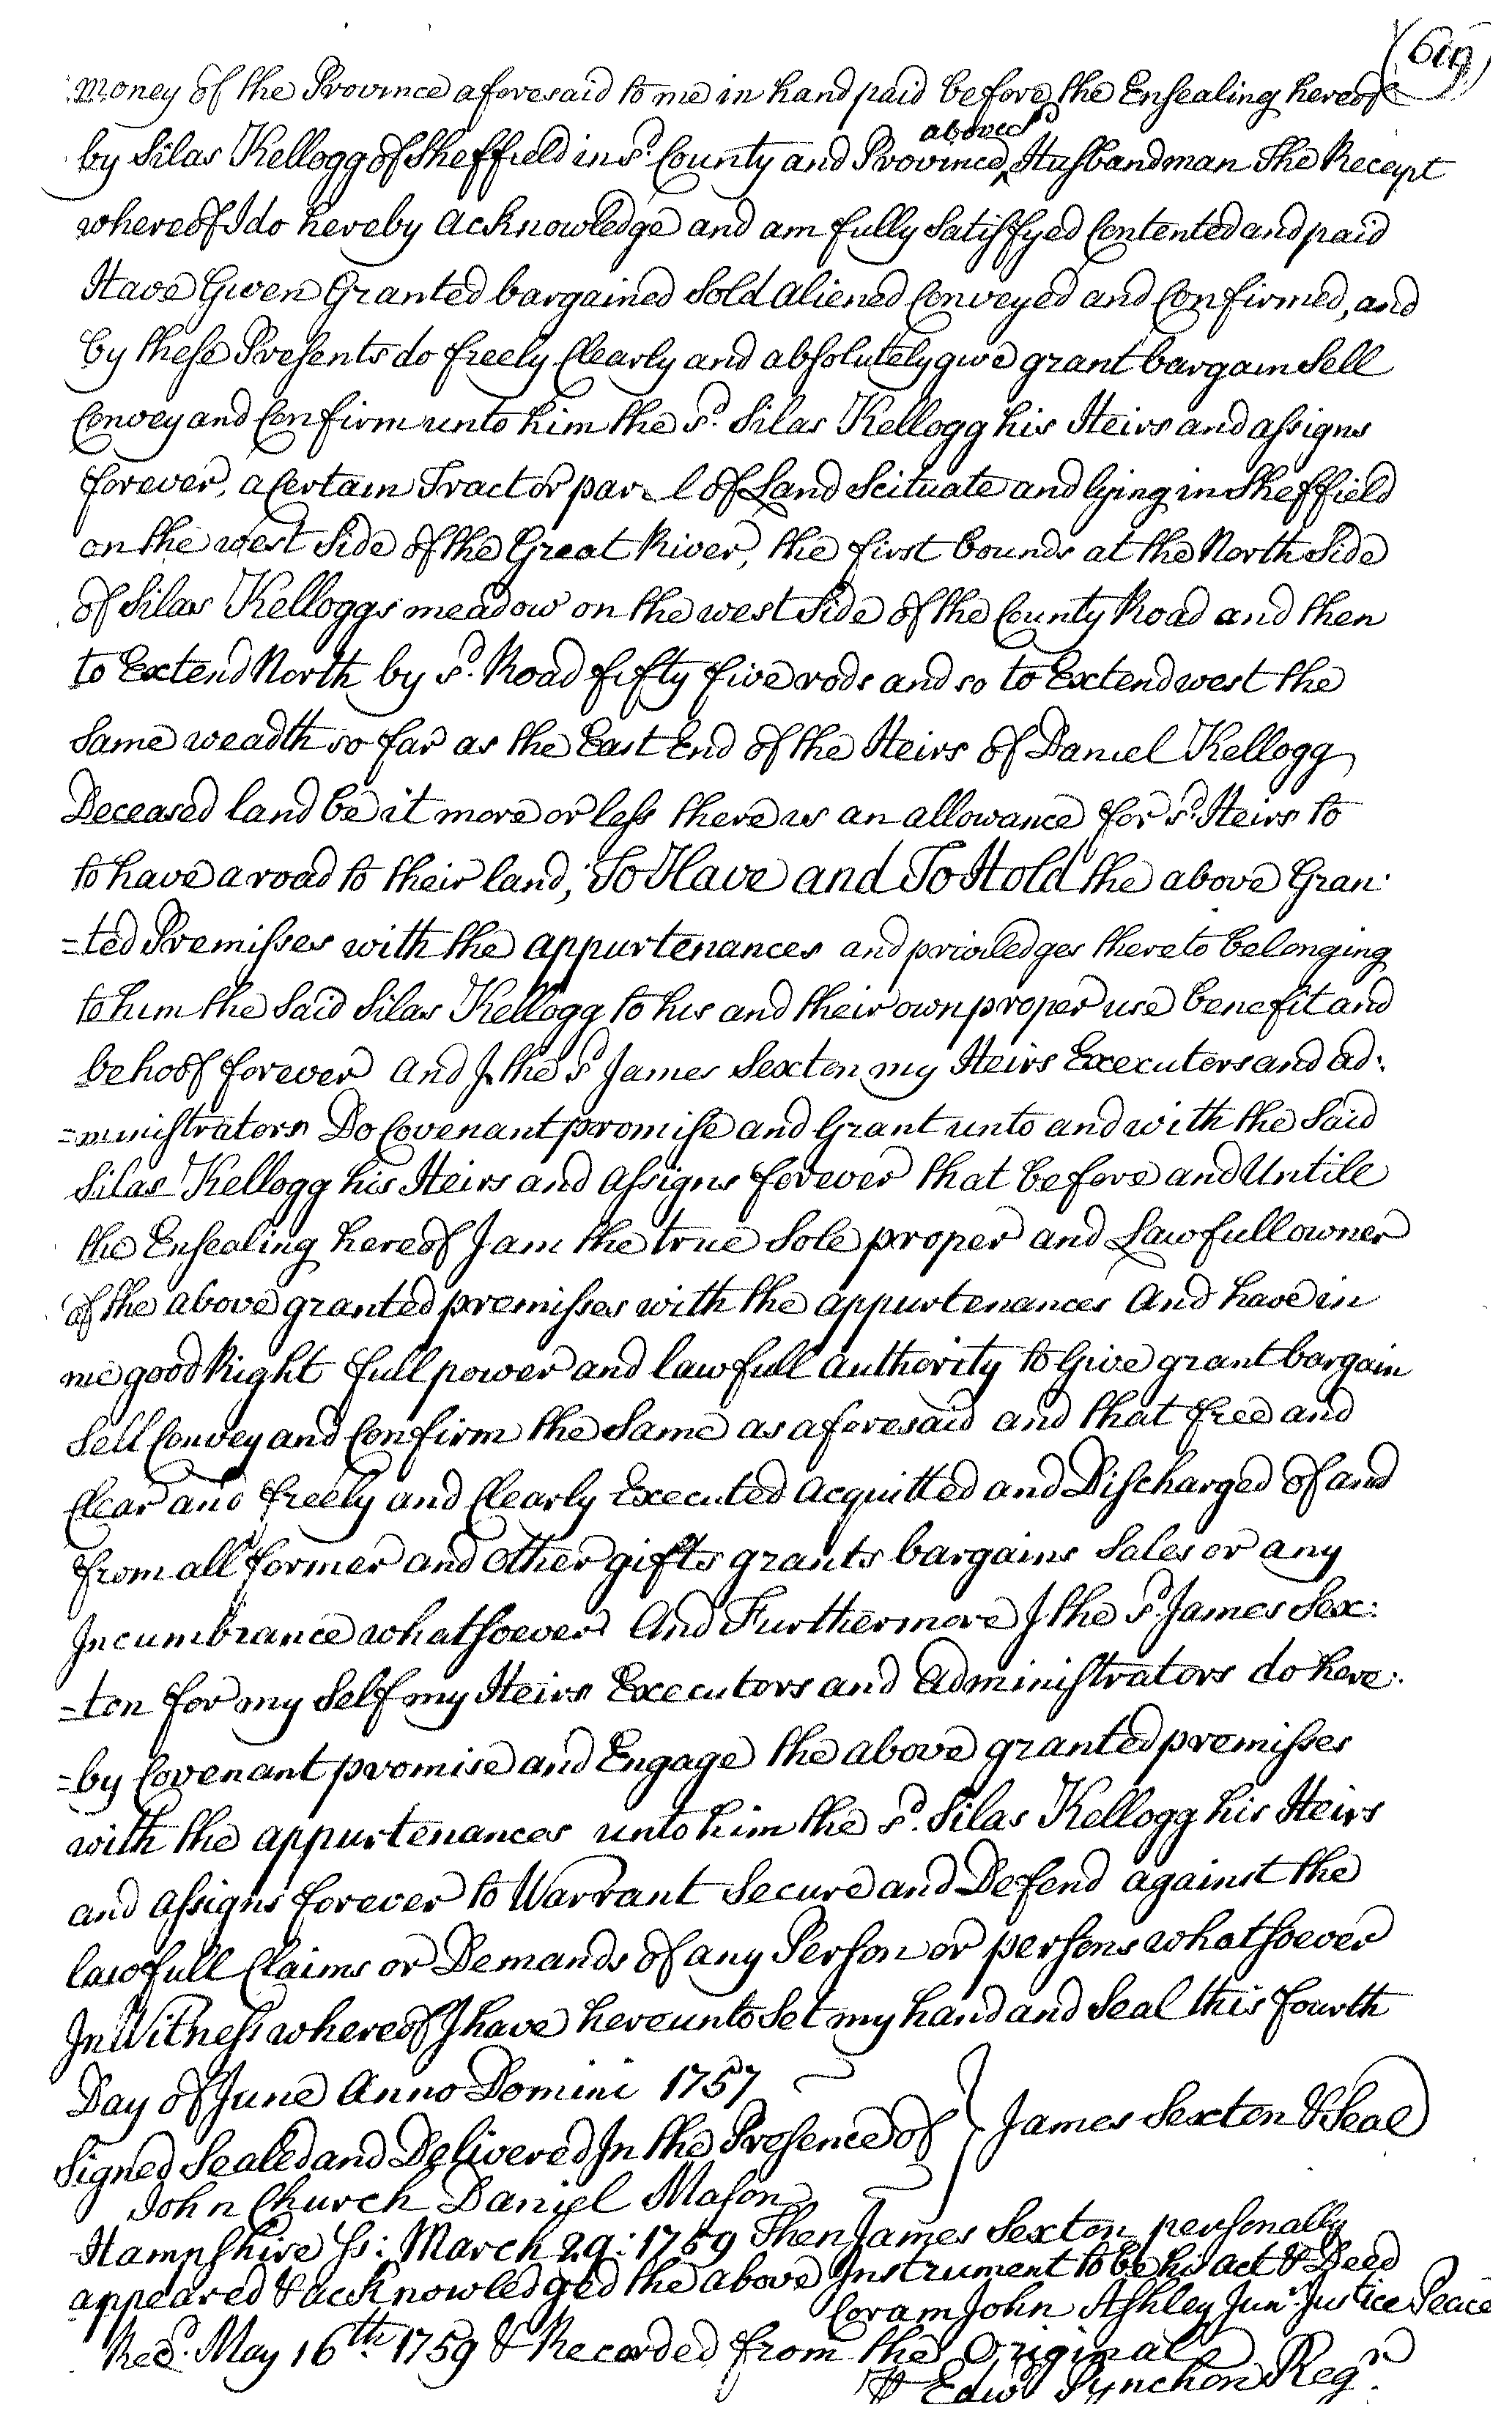 (619)
money of the Province aforesaid to me in hand paid before the Ensealing hereof
by Silas Kellogg of Sheffield in sd. County and Province above sd Husbandman The Receipt
whereof I do hereby acknowledge and am fully Satisfyed Contented and paid
Have Given Granted bargained Sold aliened Conveyed and Confirmed, and
by these Presents do freely Clearly and absolutely give grant bargain Sell
Convey and Confirm unto him the sd. Silas Kellogg his Heirs and assigns
forever, a Certain Tract or par l of Land Scituate and lying in Sheffield
on the west Side of the Great River, the first bounds at the North Side
of Silas Kelloggs meadow on the west Side of the County Road and then
to Extend North by sd. Road fifty five rods and so to Extend west the
Same weadth so far as the East End of the Heirs of Daniel Kellogg
Deceased land be it more or less there is an allowance for sd. Heirs to
to have a road to their land, To Have and To Hold the above Gran:
=ted Premisses with the appurtenances and priviledges thereto belonging
to him the Said Silas Kellogg to his and their own proper use benefit and
behoof forever and I the sd James Sexton my Heirs Executors and ad:
=ministrators Do Covenant promise and Grant unto and with the Said
Silas Kellogg his Heirs and assigns forever that before and Untill
the Ensealing hereof I am the true Sole proper and Lawfull owner
of the above granted premisses with the appurtenances And have in
me good Right full power and lawfull authority to Give grant bargain
Sell Convey and Confirm the Same as aforesaid and that free and
Clear and freely and Clearly Executed acquitted and Discharged of and
from all former and other gifts grants bargains Sales or any
Incumbrance whatsoever And Furthermore I the sd. James Sex:
=ton for my Self my Heirs Executors and administrators do here:
=by Covenant promise and Engage the above granted premisses
with the appurtenances unto him the sd. Silas Kellogg his Heirs
and assigns forever to Warrant Secure and Defend against the
lawfull Claims or Demands of any Person or persons whatsoever
In Witness whereof I have hereunto Set my hand and Seal this fourth
Day of June Anno Domini 1757
Signed Sealed and Delivered In the Presence of } James Sexton & Seal
John Church Daniel Mason
Hampshire Ss: March 29: 1759 Then James Sexton personally
appeared & acknowledged the above Instrument to be his act & Deed
Coram John Ashley Junr. Justice Peace
Recd. May 16th. 1759 & Recorded from the Original
⅌ Edwd Pynchon Regr.